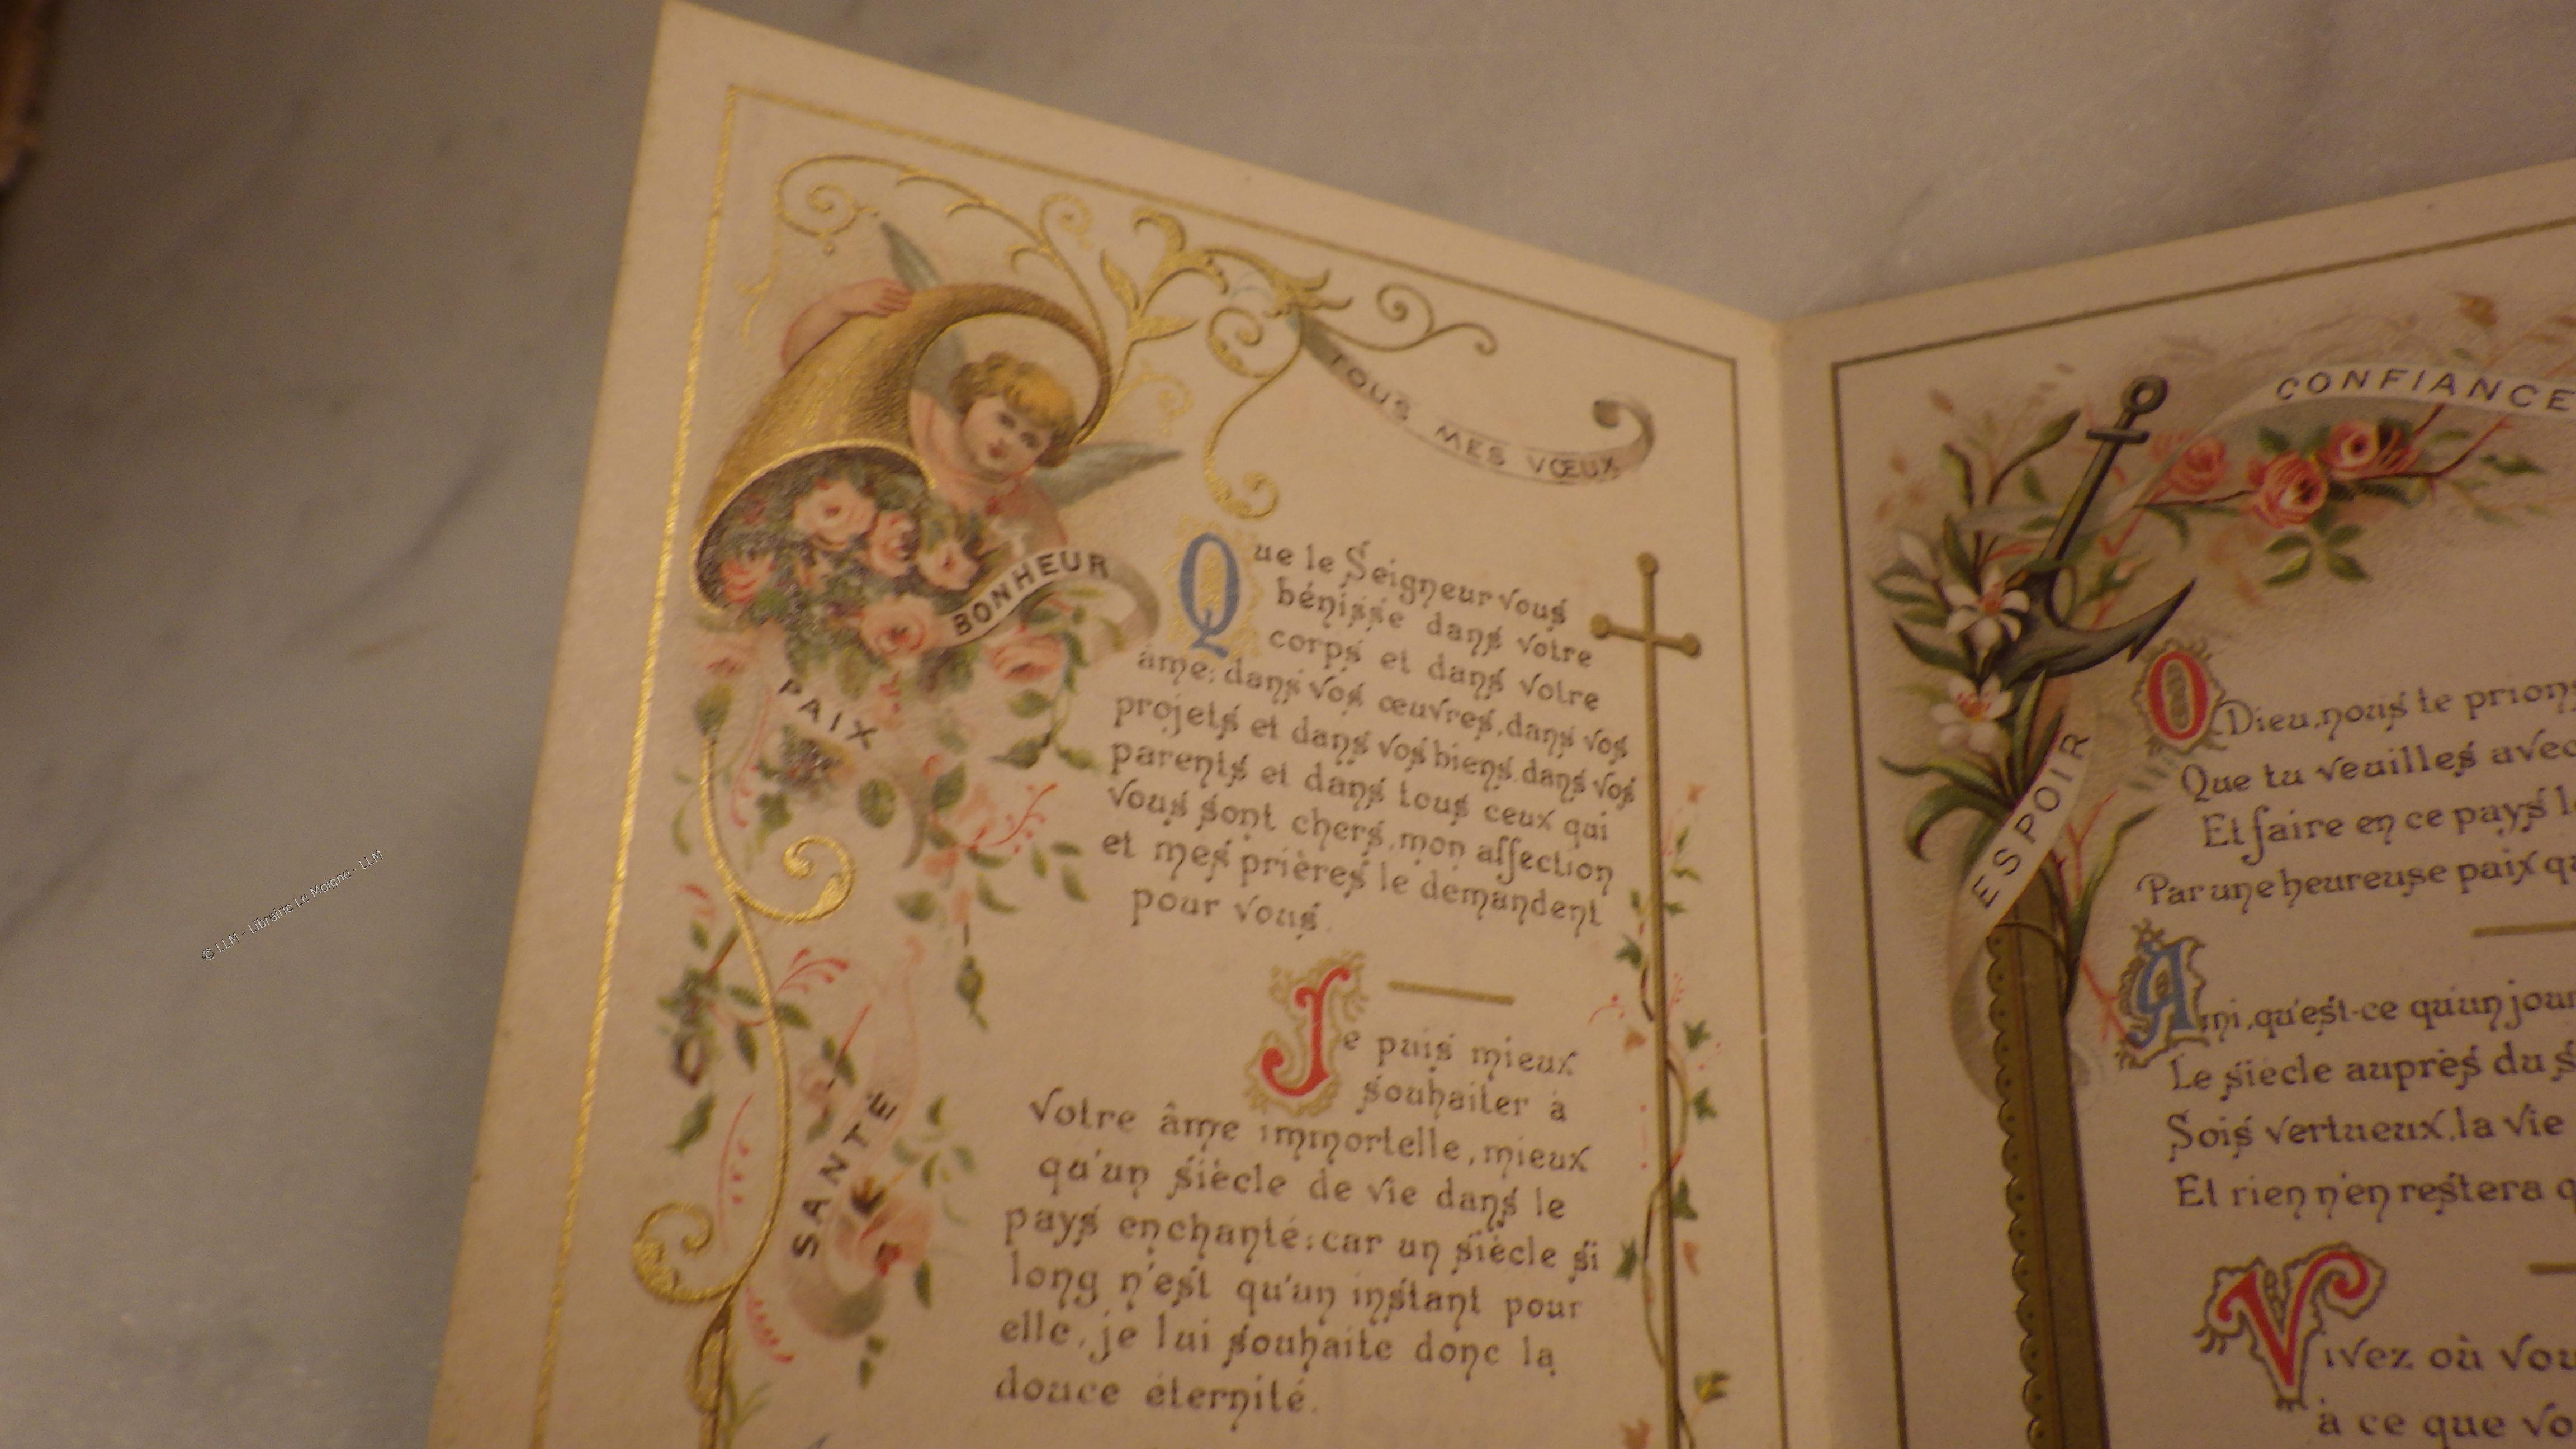 TOUS MES VŒUX
BONHEUR
PAIX
SANTÉ
Que le Seigneur vous
bénisse dans votre
corps et dans votre
âme; dans vos œuvres, dans vos
projets et dans vos biens, dans vos
parents et dans tous ceux qui
vous sont chers, mon affection
et mes prières le demandent
pour vous.
Je puis mieux
souhaiter à
votre âme immortelle, mieux
qu'un siècle de vie dans le
pays enchanté: car un siècle si
long n'est qu'un instant pour
elle, je lui souhaite donc la
douce éternité.
CONFIANCE
ESPOIR
O Dieu, nous te prions
Que tu veuilles avec
Et faire en ce pays
Par une heureuse paix
Ami, qu'est-ce qu'un jour
Le siècle auprès du
Sois vertueux, la vie
Et rien n'en restera
Vivez où
à ce que
© LLM - Librairie Le Moigne - LLM